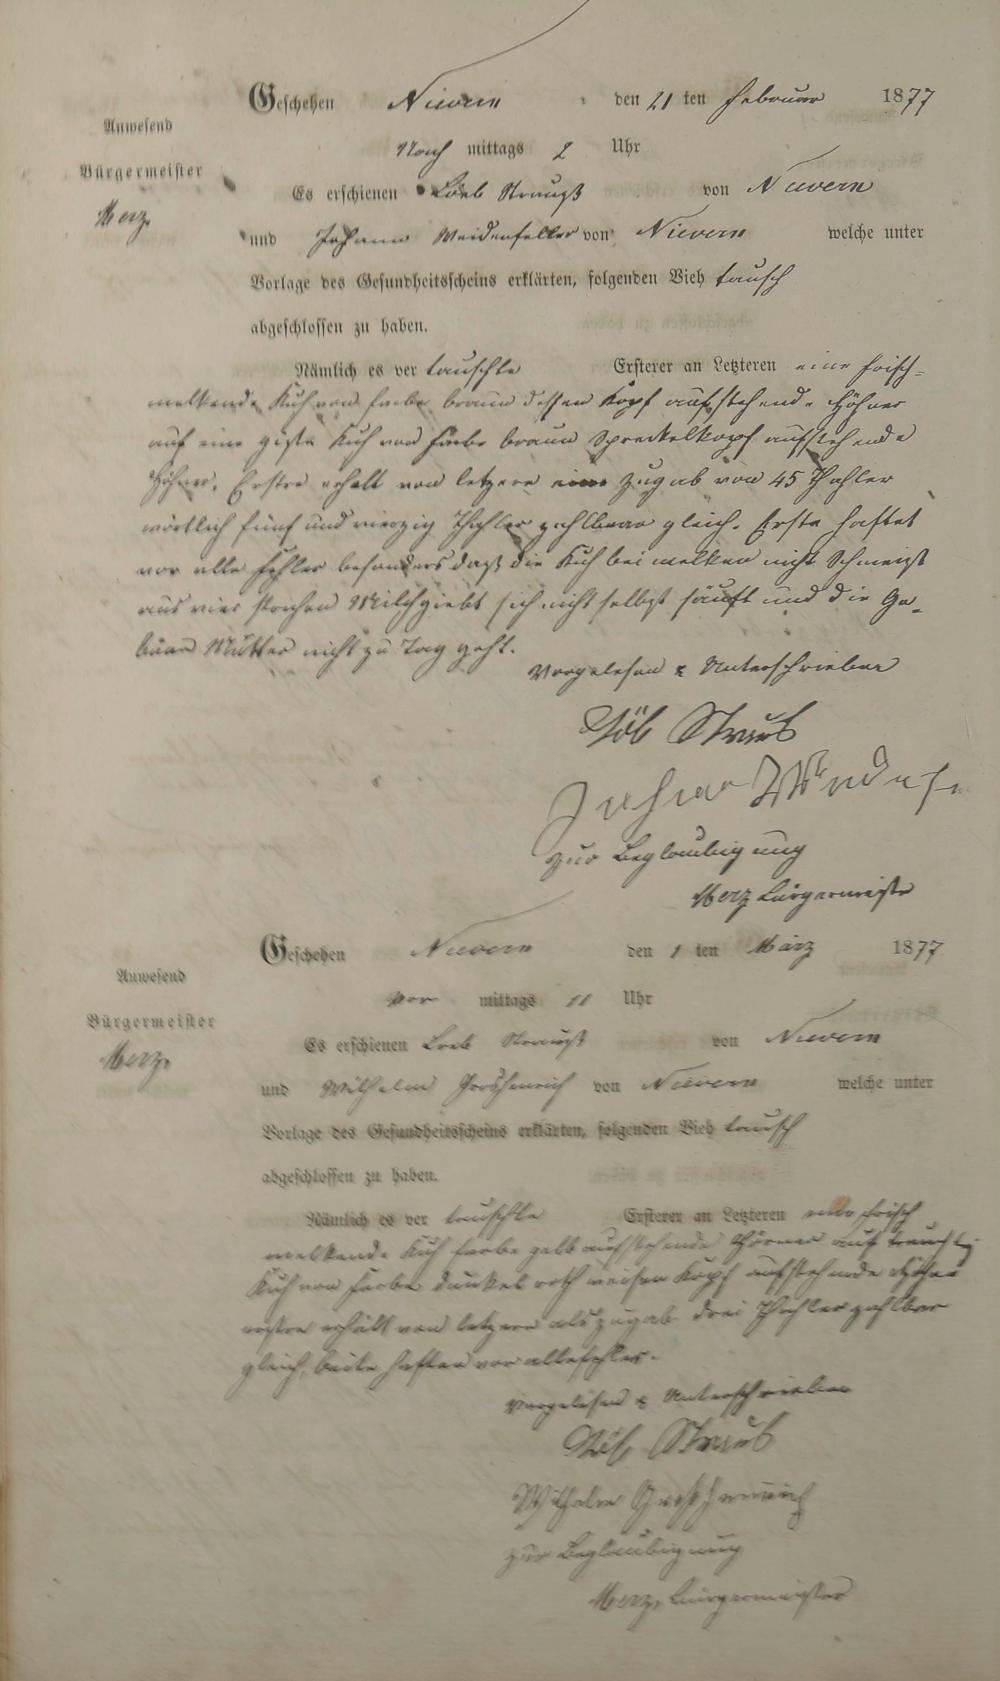 Geschehen Nievern den 21 ten Februar 1877
Anwesend
Nach mittags 2 Uhr
Bürgermeister
Es erschienen Löeb Strauß von Nievern
Merz.
und Johann Weidenfeller von Nievern welche unter
Vorlage des Gesundheitsscheins erklärten, folgenden Vieh tausch
abgeschlossen zu haben.
Nämlich es ver tauschte Ersterer an Letzteren eine frisch-
melkende Kuh von farbe braun dessen Kopf aufstehende Höhner
auf eine giste Kuh von farbe braun Spreckelkopf aufstehende
Höhner. Erstre erhalt von letzere eine Zugab von 45 Thahler
wörtlich fünf und vierzig Thahler zahlbar gleich. Erste haftet
vor alle fehler besonders daß die Kuh bei melken nicht Schmeißt
aus vier strichen Milch giebt sich nicht selbst säuft und die Ge-
bäar Mutter nicht zu Tag geht.
Vorgelesen & Unterschrieben
Löb Straus
Johan
zur Beglaubigung
Merz Bürgermeister
Geschehen Nievern den 1 ten März 1877
Anwesend
vor mittags 11 Uhr
Bürgermeister
Es erschienen Loeb Strauß von Nievern
Merz.
und Wilhelm von Nievern welche unter
Vorlage des Gesundheitsscheins erklärten, folgenden Vieh tausch
abgeschlossen zu haben.
Nämlich es ver tauschte Ersterer an Letzteren eine frisch
melkende Kuh farbe gelb aufstehende Hörner auf
Kuh von farbe dunkel roth weisen Kopf aufstehende
erstre erhält von letzere als zugab drei Thahler zahlbar
gleich, beite haften vor alle fehler.
Vorgelesen & Unterschrieben
Löb Straus
Wilhelm
zur Beglaubigung
Merz, Bürgermeister